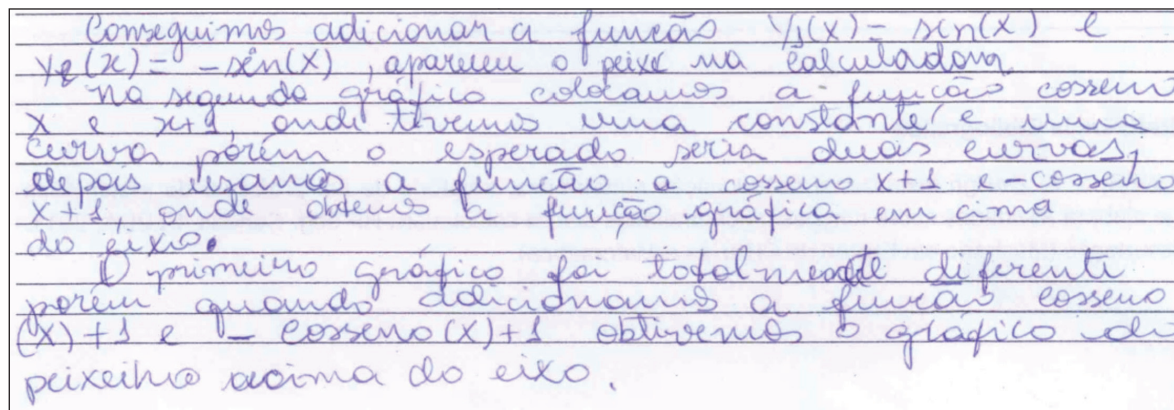 Conseguimos adicionar a função Y1(X) = sen(X) e
Y2(x) = -sen(X), apareceu o peixe na calculadora
Na segunda gráfico colocamos a função cosseno
X e x+1, onde tivemos uma constante e uma
curva porém o esperado seria duas curvas;
depois usamos a função a cosseno X+1 e -cosseno
X+1, onde obtemos a função gráfica em cima
do eixo.
O primeiro gráfico foi totalmente diferente
porém quando adicionamos a função cosseno
(X)+1 e - cosseno(X)+1 obtivemos o gráfico do
peixinho acima do eixo.